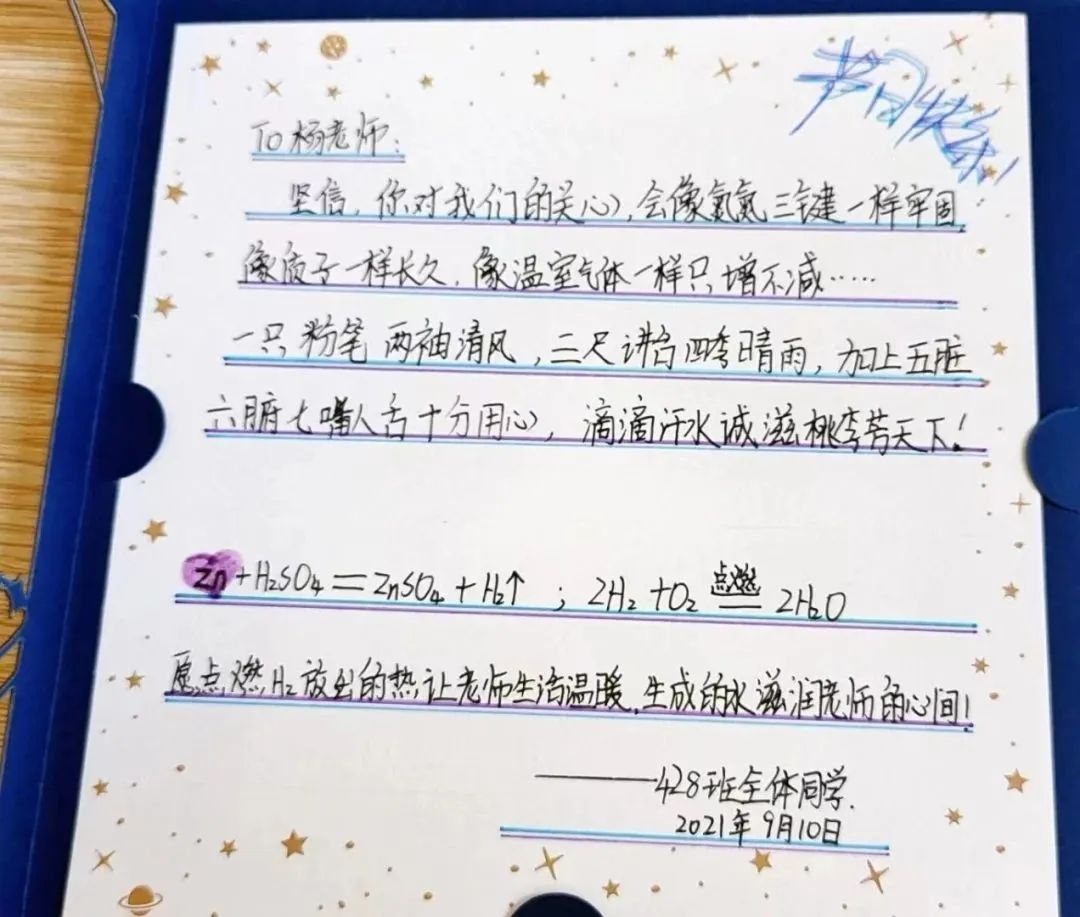 节日快乐!
To 杨老师:
坚信,你对我们的关心,会像氮氮三键一样牢固,
像质子一样长久,像温室气体一样只增不减……
一只粉笔 两袖清风,三尺讲台四季晴雨,加上五脏
六腑七嘴八舌十分用心,滴滴汗水诚滋桃李芳天下!
Zn+H₂SO₄=ZnSO₄+H₂↑ ; 2H₂+O₂ 点燃 = 2H₂O
愿点燃H₂放出的热让老师生活温暖,生成的水滋润老师的心间!
——428班全体同学.
2021年9月10日